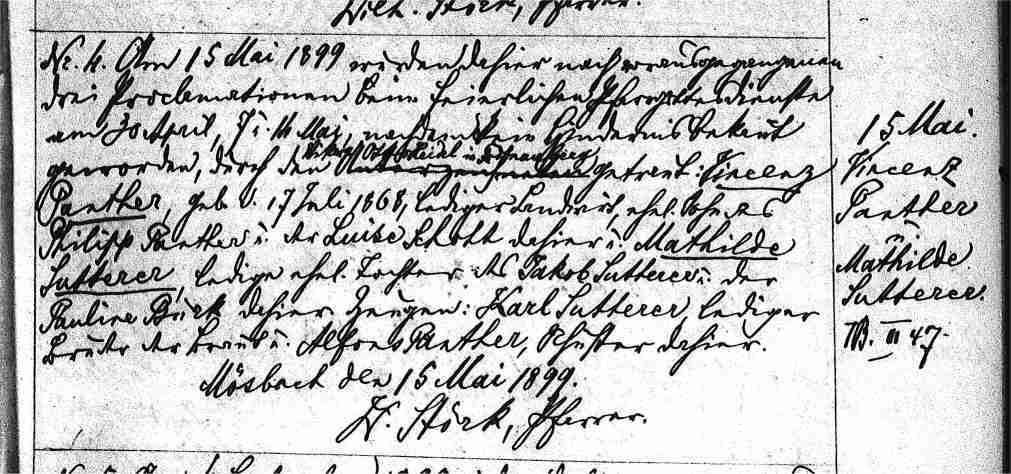 Wilh. Störk, Pfarrer.
Nr. 4. Am 15 Mai 1899 wurden dahier nach vorausgegangenen
drei Proclamationen beim feierlichen Pfarrgottesdienste
am 30 April, 7 u. 14 Mai, nachdem kein Hindernis bekannt
geworden, durch den Unterzeichneten getraut: Vincenz
Panther, geb. d. 17 Juli 1868, lediger Landwirt, ehel. Sohn des
Philipp Panther u. der Luise Schott dahier u. Mathilde
Sutterer, ledige ehel. Tochter des Jakob Sutterer u. der
Pauline Burk dahier. Zeugen: Karl Sutterer, lediger
Bruder der Braut u. Alfons Panther, Schuster dahier.
Mösbach den 15 Mai 1899.
W. Störk, Pfarrer.
15 Mai.
Vincenz
Panther
u.
Mathilde
Sutterer.
TB. II 47.